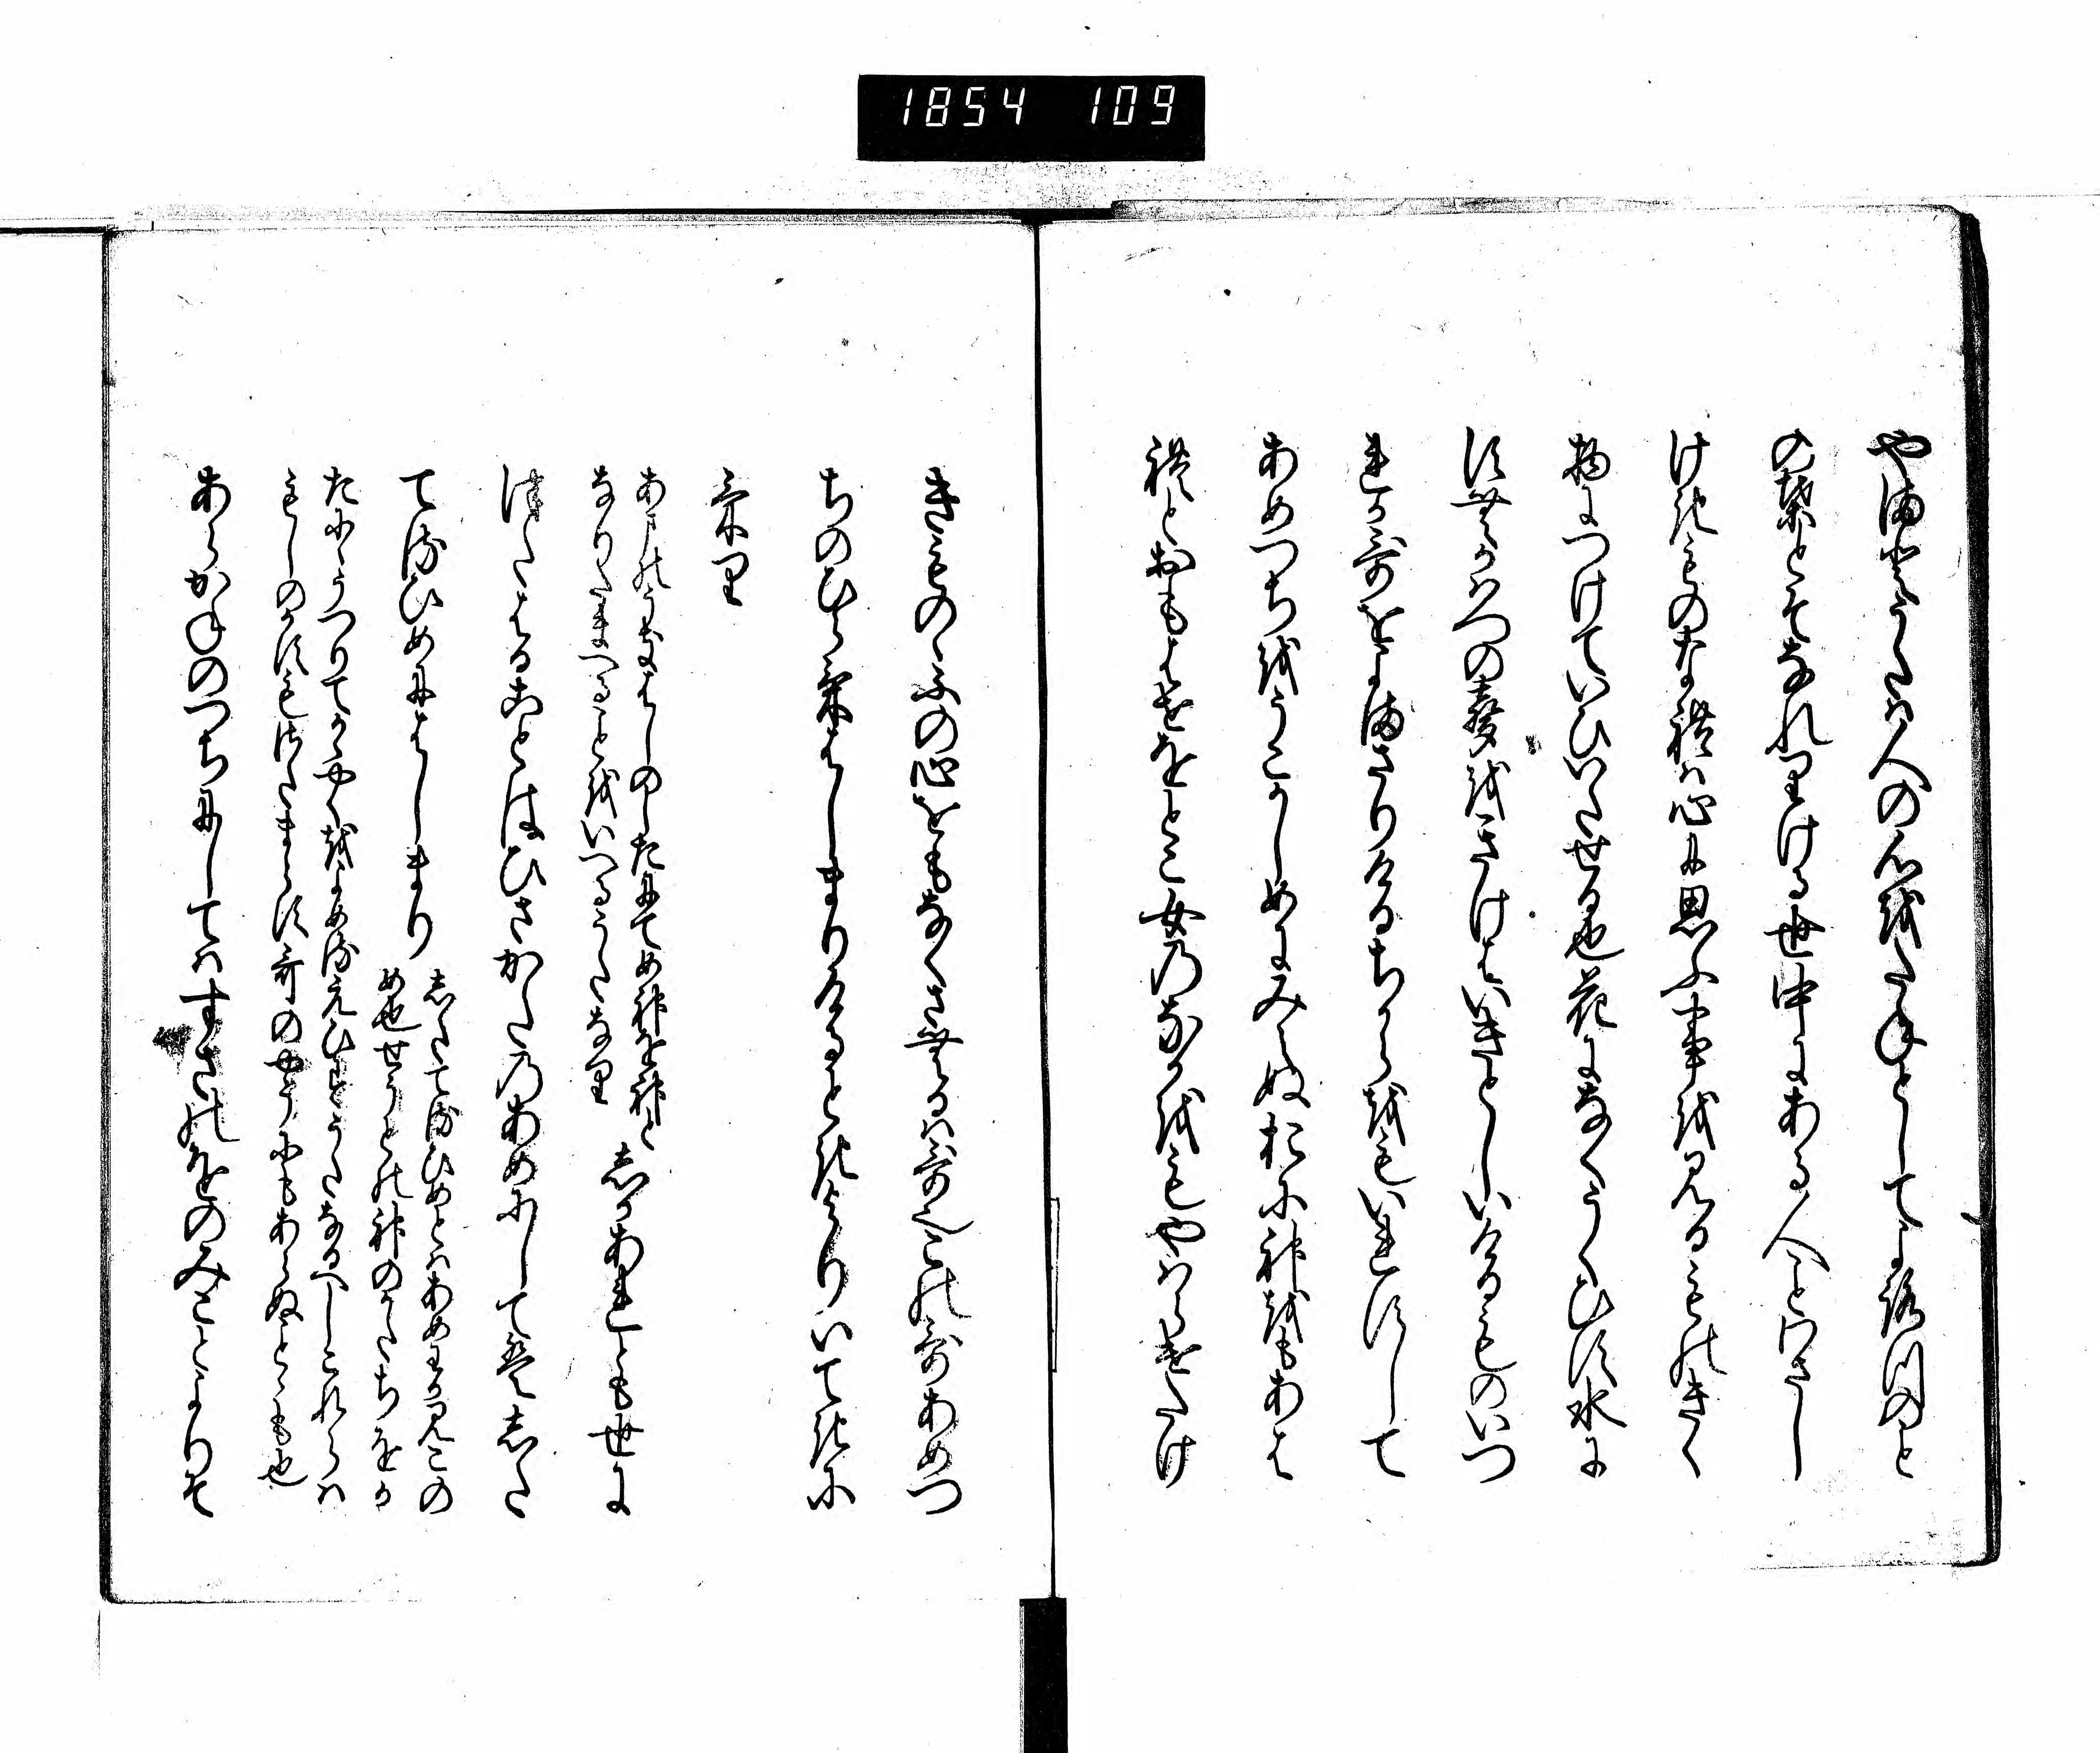 1854 109
やまとうたは人の心をたねとしてよろつのこと
の葉とそなれりける世中にある人ことわさし
けきものなれは心に思ふ事を見るものきく
物につけていひいたせる也花になくうくひす水に
すむかはつの声をきけはいきとしいけるものいつ
れか哥をよまさりけるちからをもいれすして
あめつちをうこかしめに見えぬおに神をもあは
れとおもはせをとこ女のなかをもやはらけたけ
きものゝふの心をもなくさむるは哥也この哥あめつ
ちのひらけはしまりけるときよりいてきに
けり
あまのうきはしのしたにてめ神を神と
なりたまへることをいへるうたなり
しかあれとも世に
つたはることはひさかたのあめにしてはした
てるひめにはしまり
したてるひめとはあめわかみこの
め也せうとの神のかたちをか
たにうつりてかゝやくをよめるえひすうたなるへしこれらは
もしのかすもさたまらす哥のやうにもあらぬことゝも也
あらかねのつちにしてはすさのをのみことよりそ